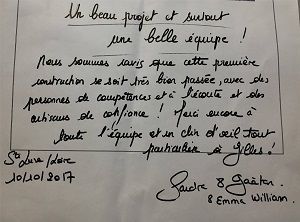 Un beau projet et surtout
une belle équipe !
Nous sommes ravis que cette première
construction se soit très bien passée, avec des
personnes de compétences et à l'écoute et des
artisans de confiance ! Merci encore à
toute l'équipe et un clin d'œil tout
particulier à Gilles !
10/10/2017
& Gaëtan
& Emma William.